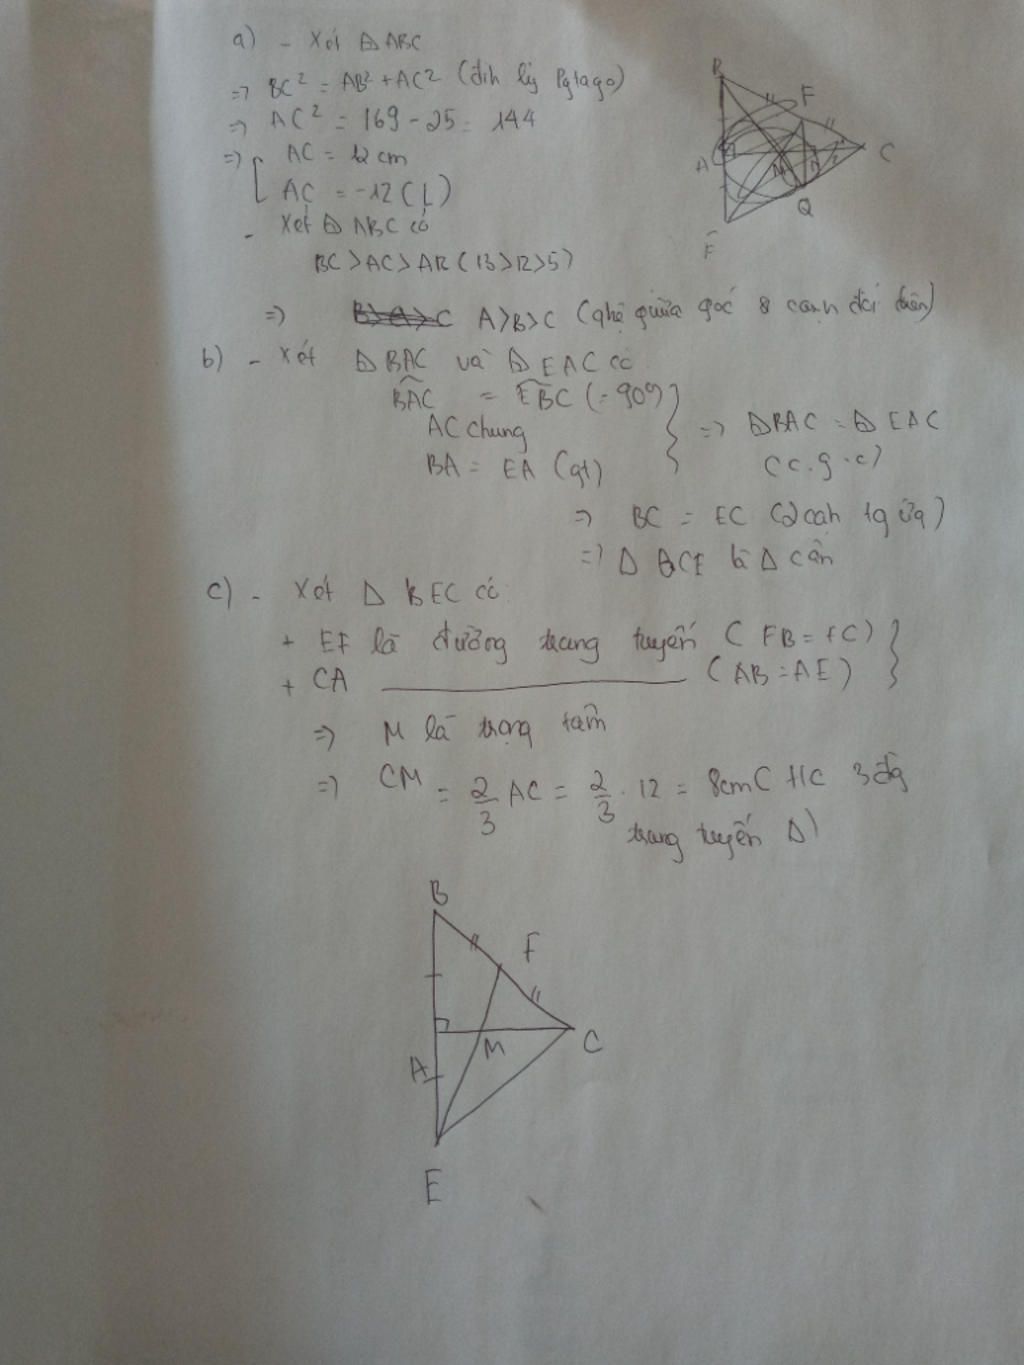 a) - Xét Δ ABC
=> BC² = AB² + AC² (đih lý Pytago)
=> AC² = 169 - 25 = 144
=> [ AC = 12 cm
AC = -12 (L)
- Xét Δ ABC có
BC > AC > AB (13 > 12 > 5)
=> A > B > C (qhệ giữa góc & cạnh đối diện)
b) - Xét Δ BAC và Δ EAC có
BAC = EBC (= 90°)
AC chung
BA = EA (gt)
=> Δ BAC = Δ EAC
(c.g.c)
=> BC = EC (2 cạh tg ứg)
=> Δ BCE là Δ cân
c) - Xét Δ BEC có:
+ EF là đường trung tuyến (FB = FC)
+ CA ______ (AB = AE)
=> M là trọng tâm
=> CM = 2/3 AC = 2/3 . 12 = 8cm ( t/c 3 đg
trung tuyến Δ)
B
F
A
M
C
Q
E
B
F
M
C
A
E